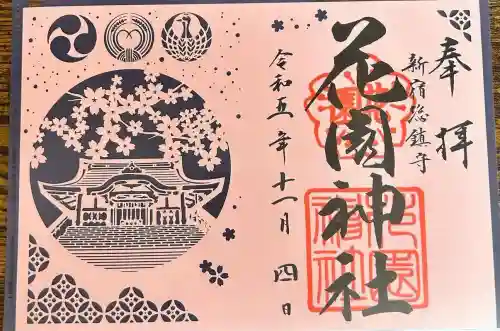 奉拝
新宿総鎮守
花園神社
令和五年十一月四日